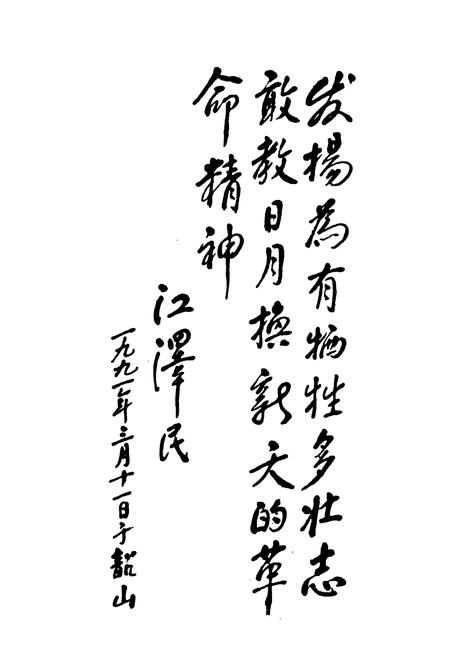 发揚為有牺牲多壮志
敢教日月換新天的革
命精神
江澤民
一九九一年三月十一日于韶山